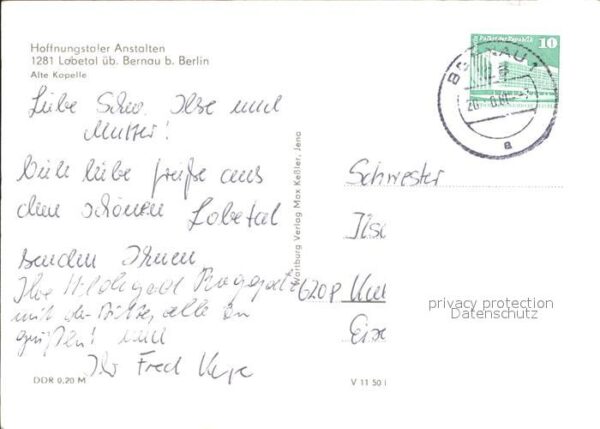 Hoffnungstaler Anstalten
1281 Lobetal üb. Bernau b. Berlin
Alte Kapelle
10
BERNAU 1
a
Liebe Schw. Ilse und
Mutter!
Viele liebe Grüße aus
dem schönen Lobetal
senden Ihnen
Ihre Hildegard
mit der Bitte, alle zu
grüßen! und
Ihr Fred
Wartburg Verlag Max Keßler, Jena
Schwester
Ilse
privacy protection
Datenschutz
DDR 0,20 M
V 11 50